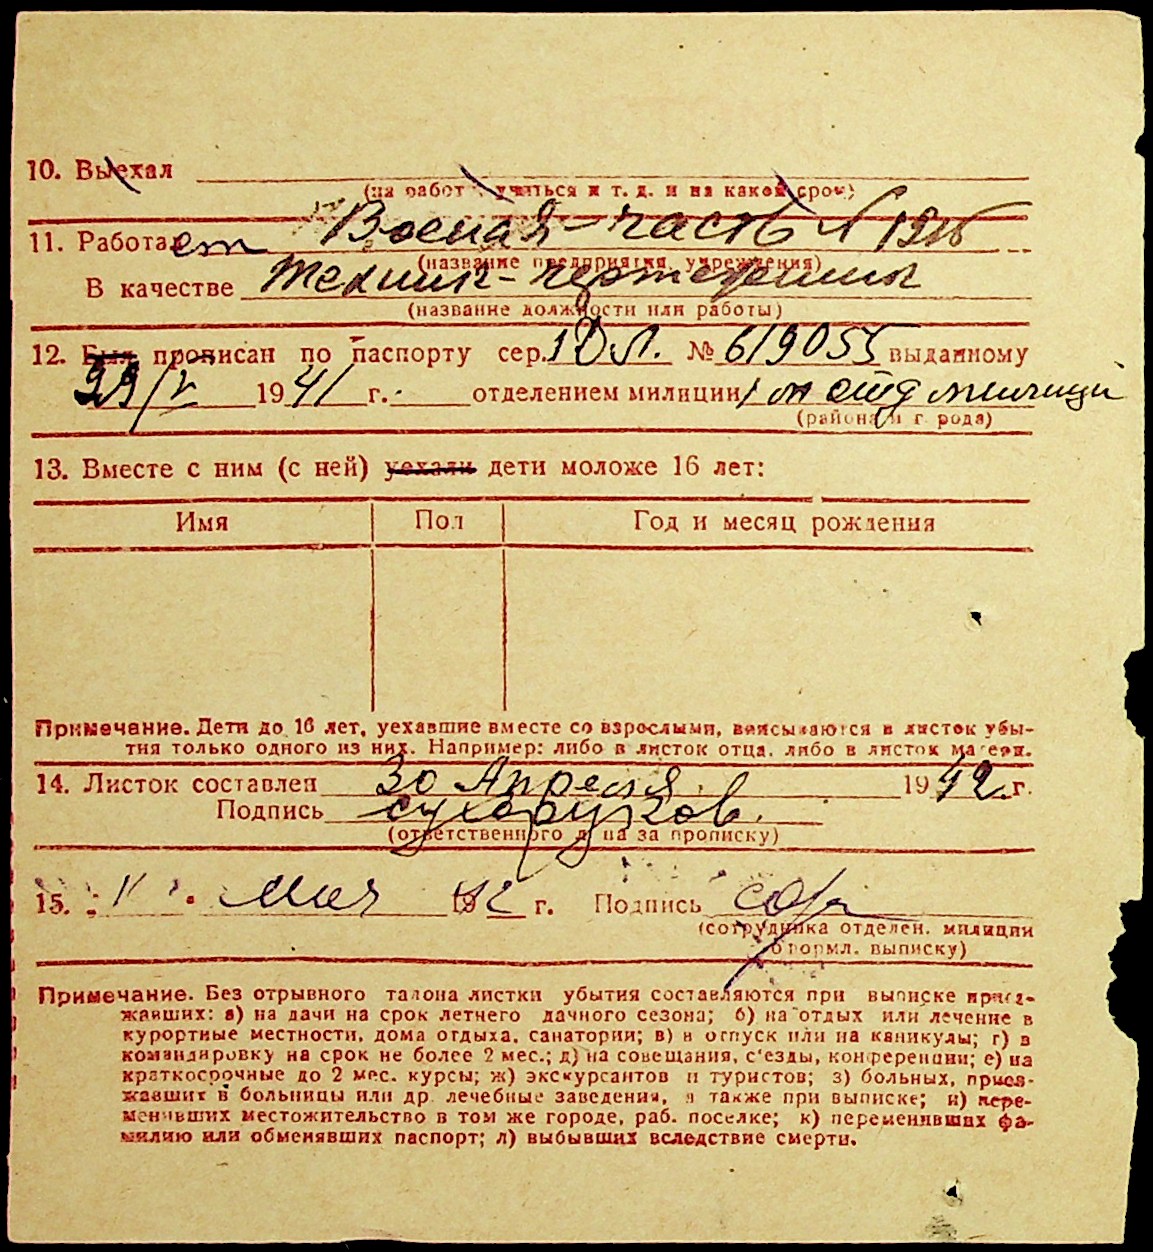 10. Выехал
(на работ учиться и т. д. и на какой срок)
11. Работает Военая-часть № 1915
(название предприятия, учреждения)
В качестве Техник-чертежницы
(название должности или работы)
12. Был прописан по паспорту сер. 1 ДЛ. № 619055 выданному
29/V 1941 г. отделением милиции 1 м отд милиции
(района и г рода)
13. Вместе с ним (с ней) уехали дети моложе 16 лет:
Имя Пол Год и месяц рождения
Примечание. Дети до 16 лет, уехавшие вместе со взрослыми, вписываются в листок убы-
тия только одного из них. Например: либо в листок отца, либо в листок матери.
14. Листок составлен 30 Апреля 1942 г.
Подпись Сухоруков.
(ответственного л на за прописку)
15. 1 Мая 1942 г. Подпись
(сотрудника отделен. милиции
оформл. выписку)
Примечание. Без отрывного талона листки убытия составляются при выписке приез-
жавших: а) на дачи на срок летнего дачного сезона; б) на отдых или лечение в
курортные местности, дома отдыха, санатории; в) в отпуск или на каникулы; г) в
командировку на срок не более 2 мес.; д) на совещания, с'езды, конференции; е) на
краткосрочные до 2 мес. курсы; ж) экскурсантов и туристов; з) больных, приез-
жавших в больницы или др. лечебные заведения, а также при выписке; и) пере-
менивших местожительство в том же городе, раб. поселке; к) переменивших фа-
милию или обменявших паспорт; л) выбывших вследствие смерти.